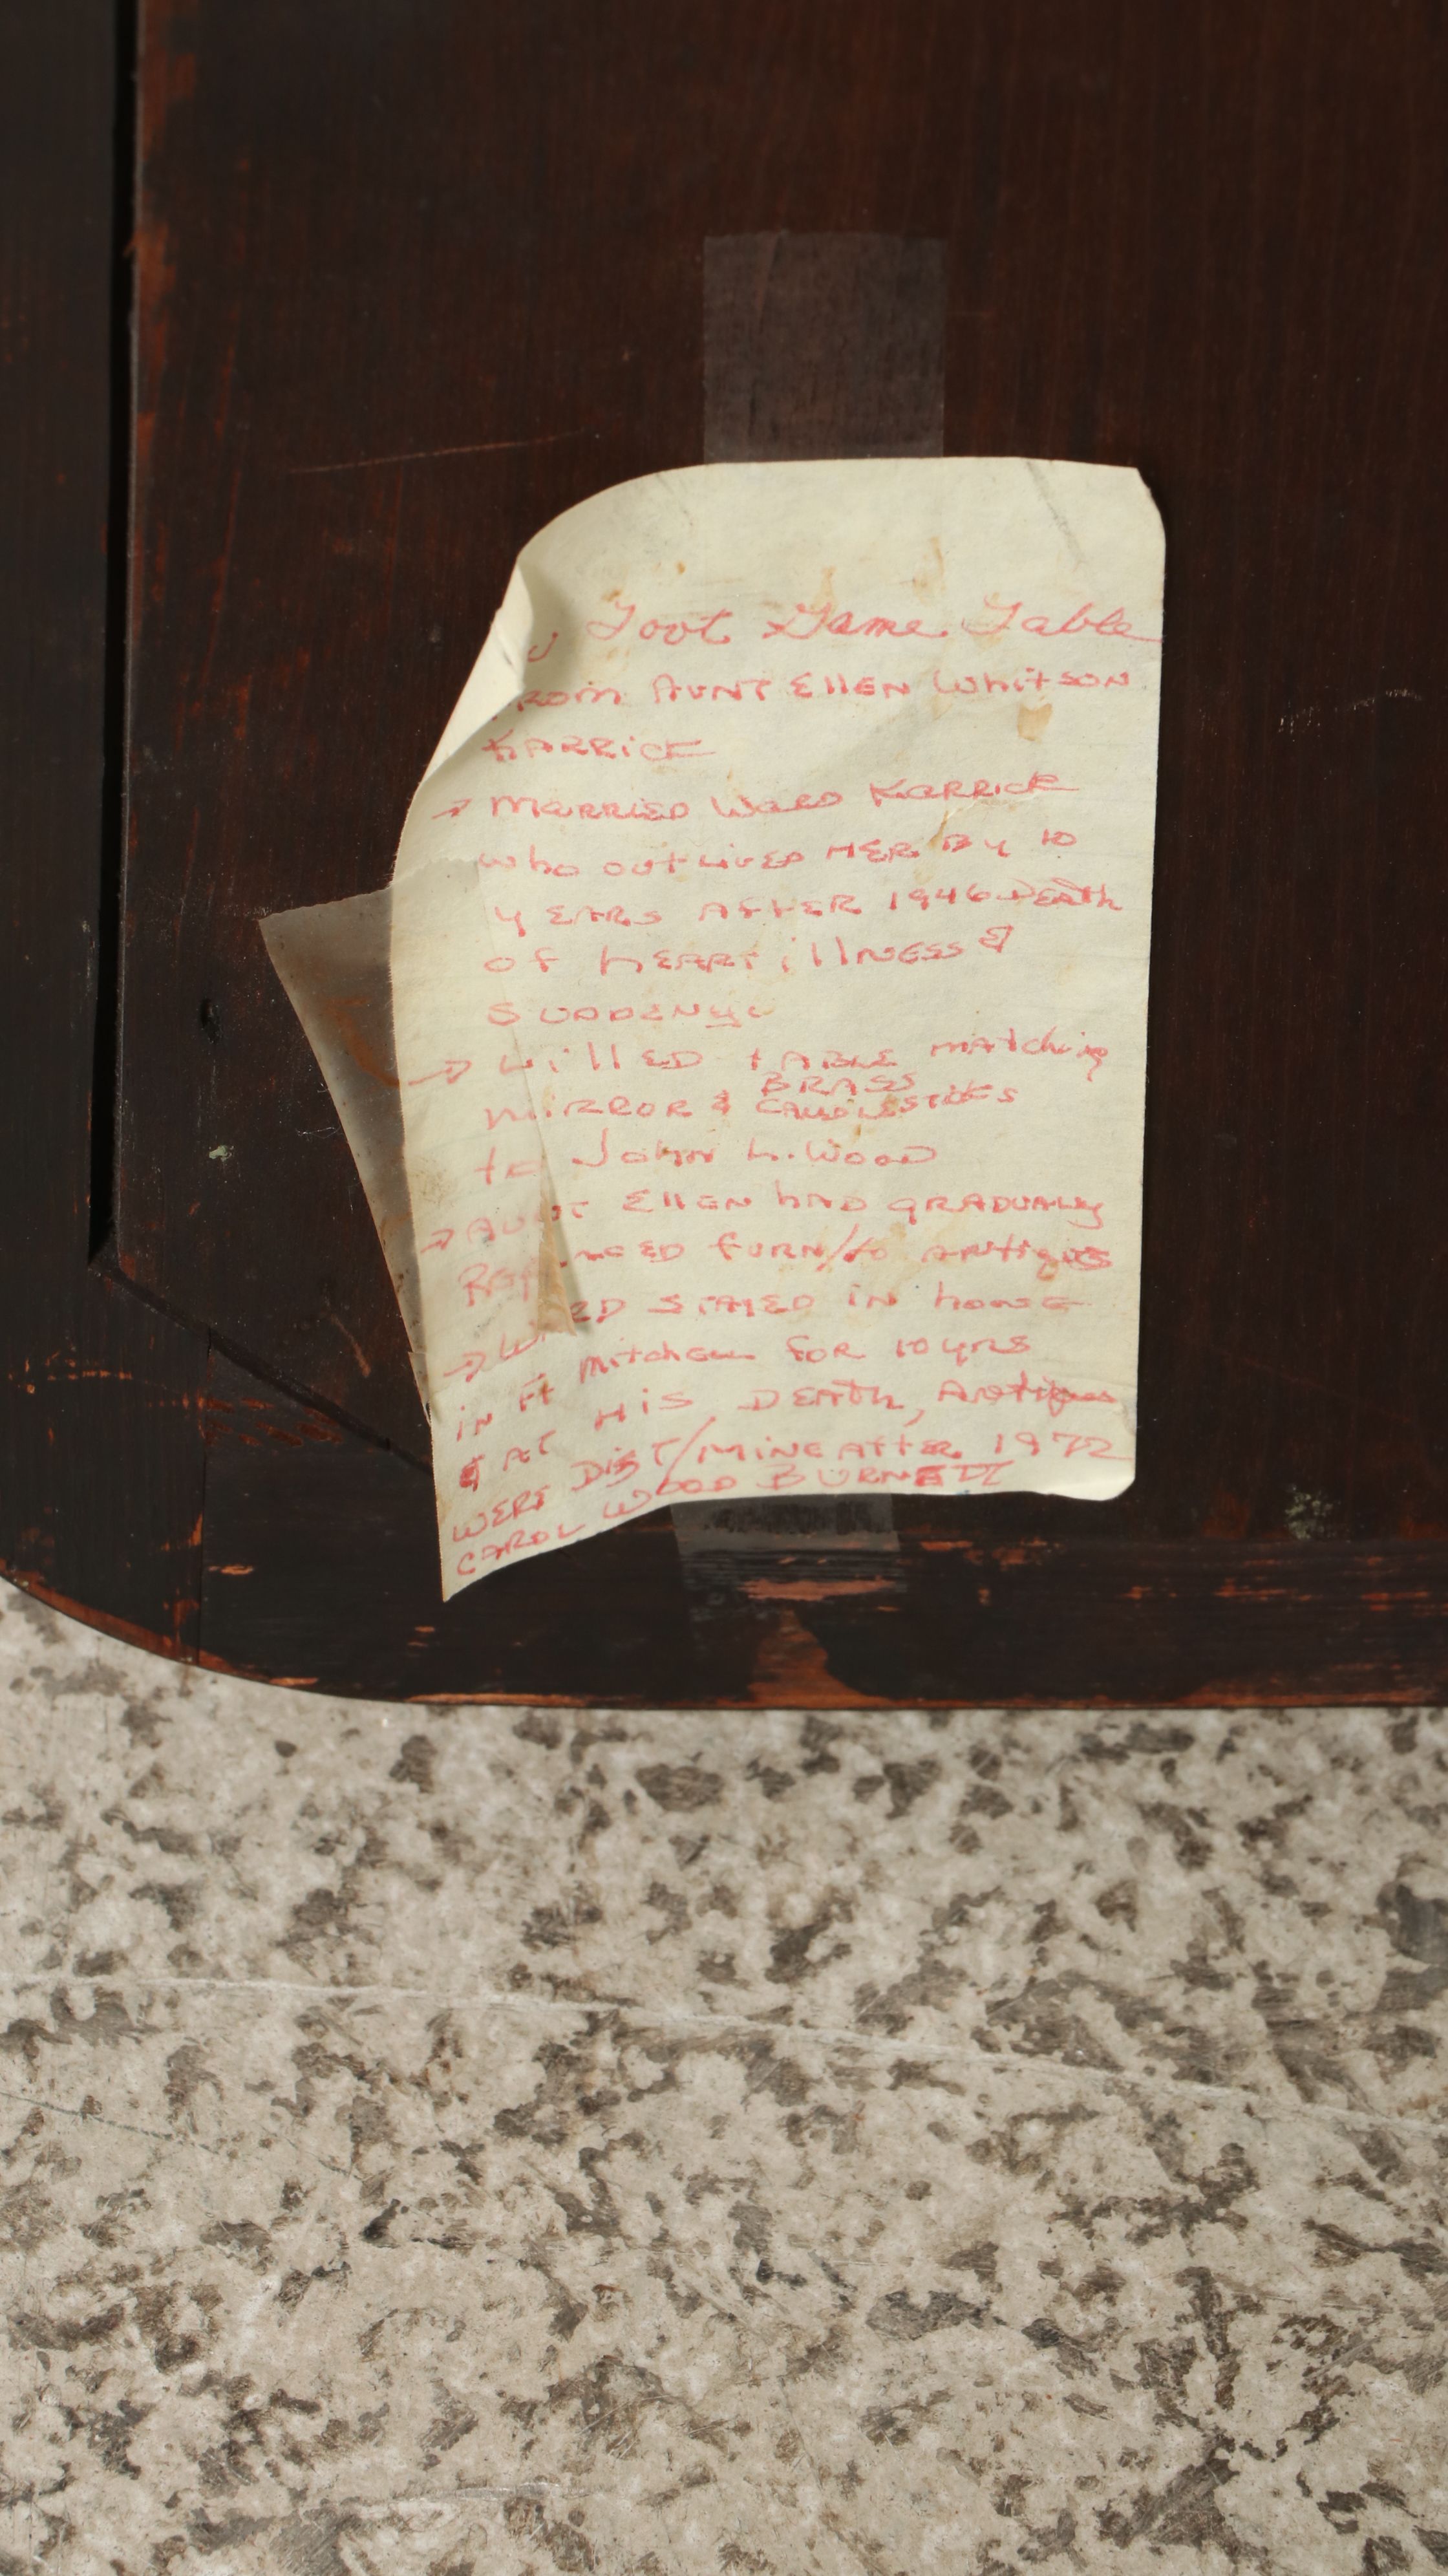 Foot Game Table
FROM AUNT ELLEN WHITSON
KARRICK
→ MARRIED WARD KARRICK
who outlived HER By 10
YEARS AFTER 1946 DEATH
of HEART illNESS &
SUDDENLY
→ WillED tABLE matching
MIRROR & BRASS CANDLESTICKS
to John h. Wood
→ AUNT EllEN hAD GRADUALLY
FURN/to ANtiques
→ STAYED IN home
IN Ft Mitchell FOR 10 yrs
& AT HIS DEATH, Antiques
WERE DIST/MINE AftER 1972
CAROL WOOD BURNETT